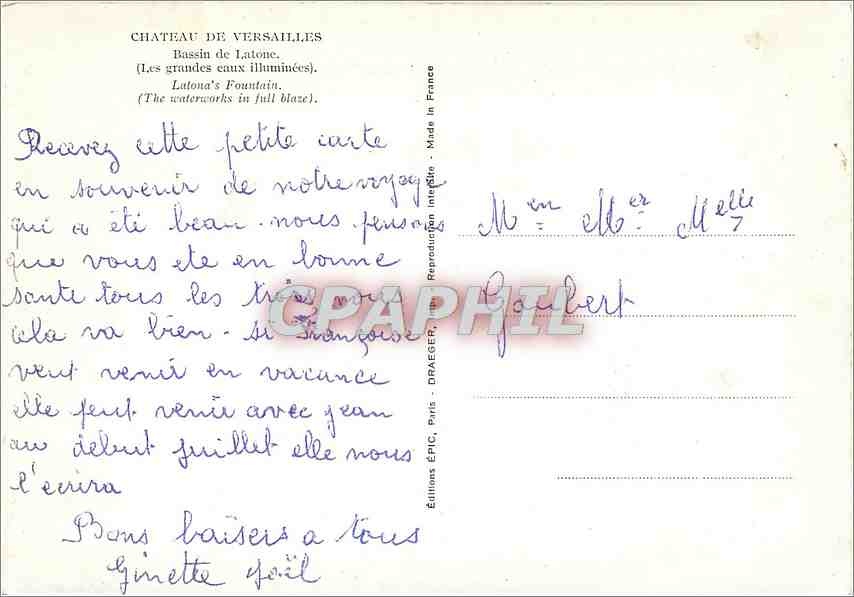 CHATEAU DE VERSAILLES
Bassin de Latone.
(Les grandes eaux illuminées).
Latona's Fountain.
(The waterworks in full blaze).
Recevez cette petite carte
en souvenir de notre voyage
qui a été beau. nous pensons
que vous ete en bonne
sante tous les trois nous
cela va bien - si Françoise
veut venir en vacance
elle peut venir avec jean
au debut juillet elle nous
l'ecrira
Bons baisers a tous
Ginette Joël
Editions ÉPIC, Paris - DRAEGER, imp. - Reproduction interdite - Made in France
Men Mer Melle
Gaubert
CPAPHIL